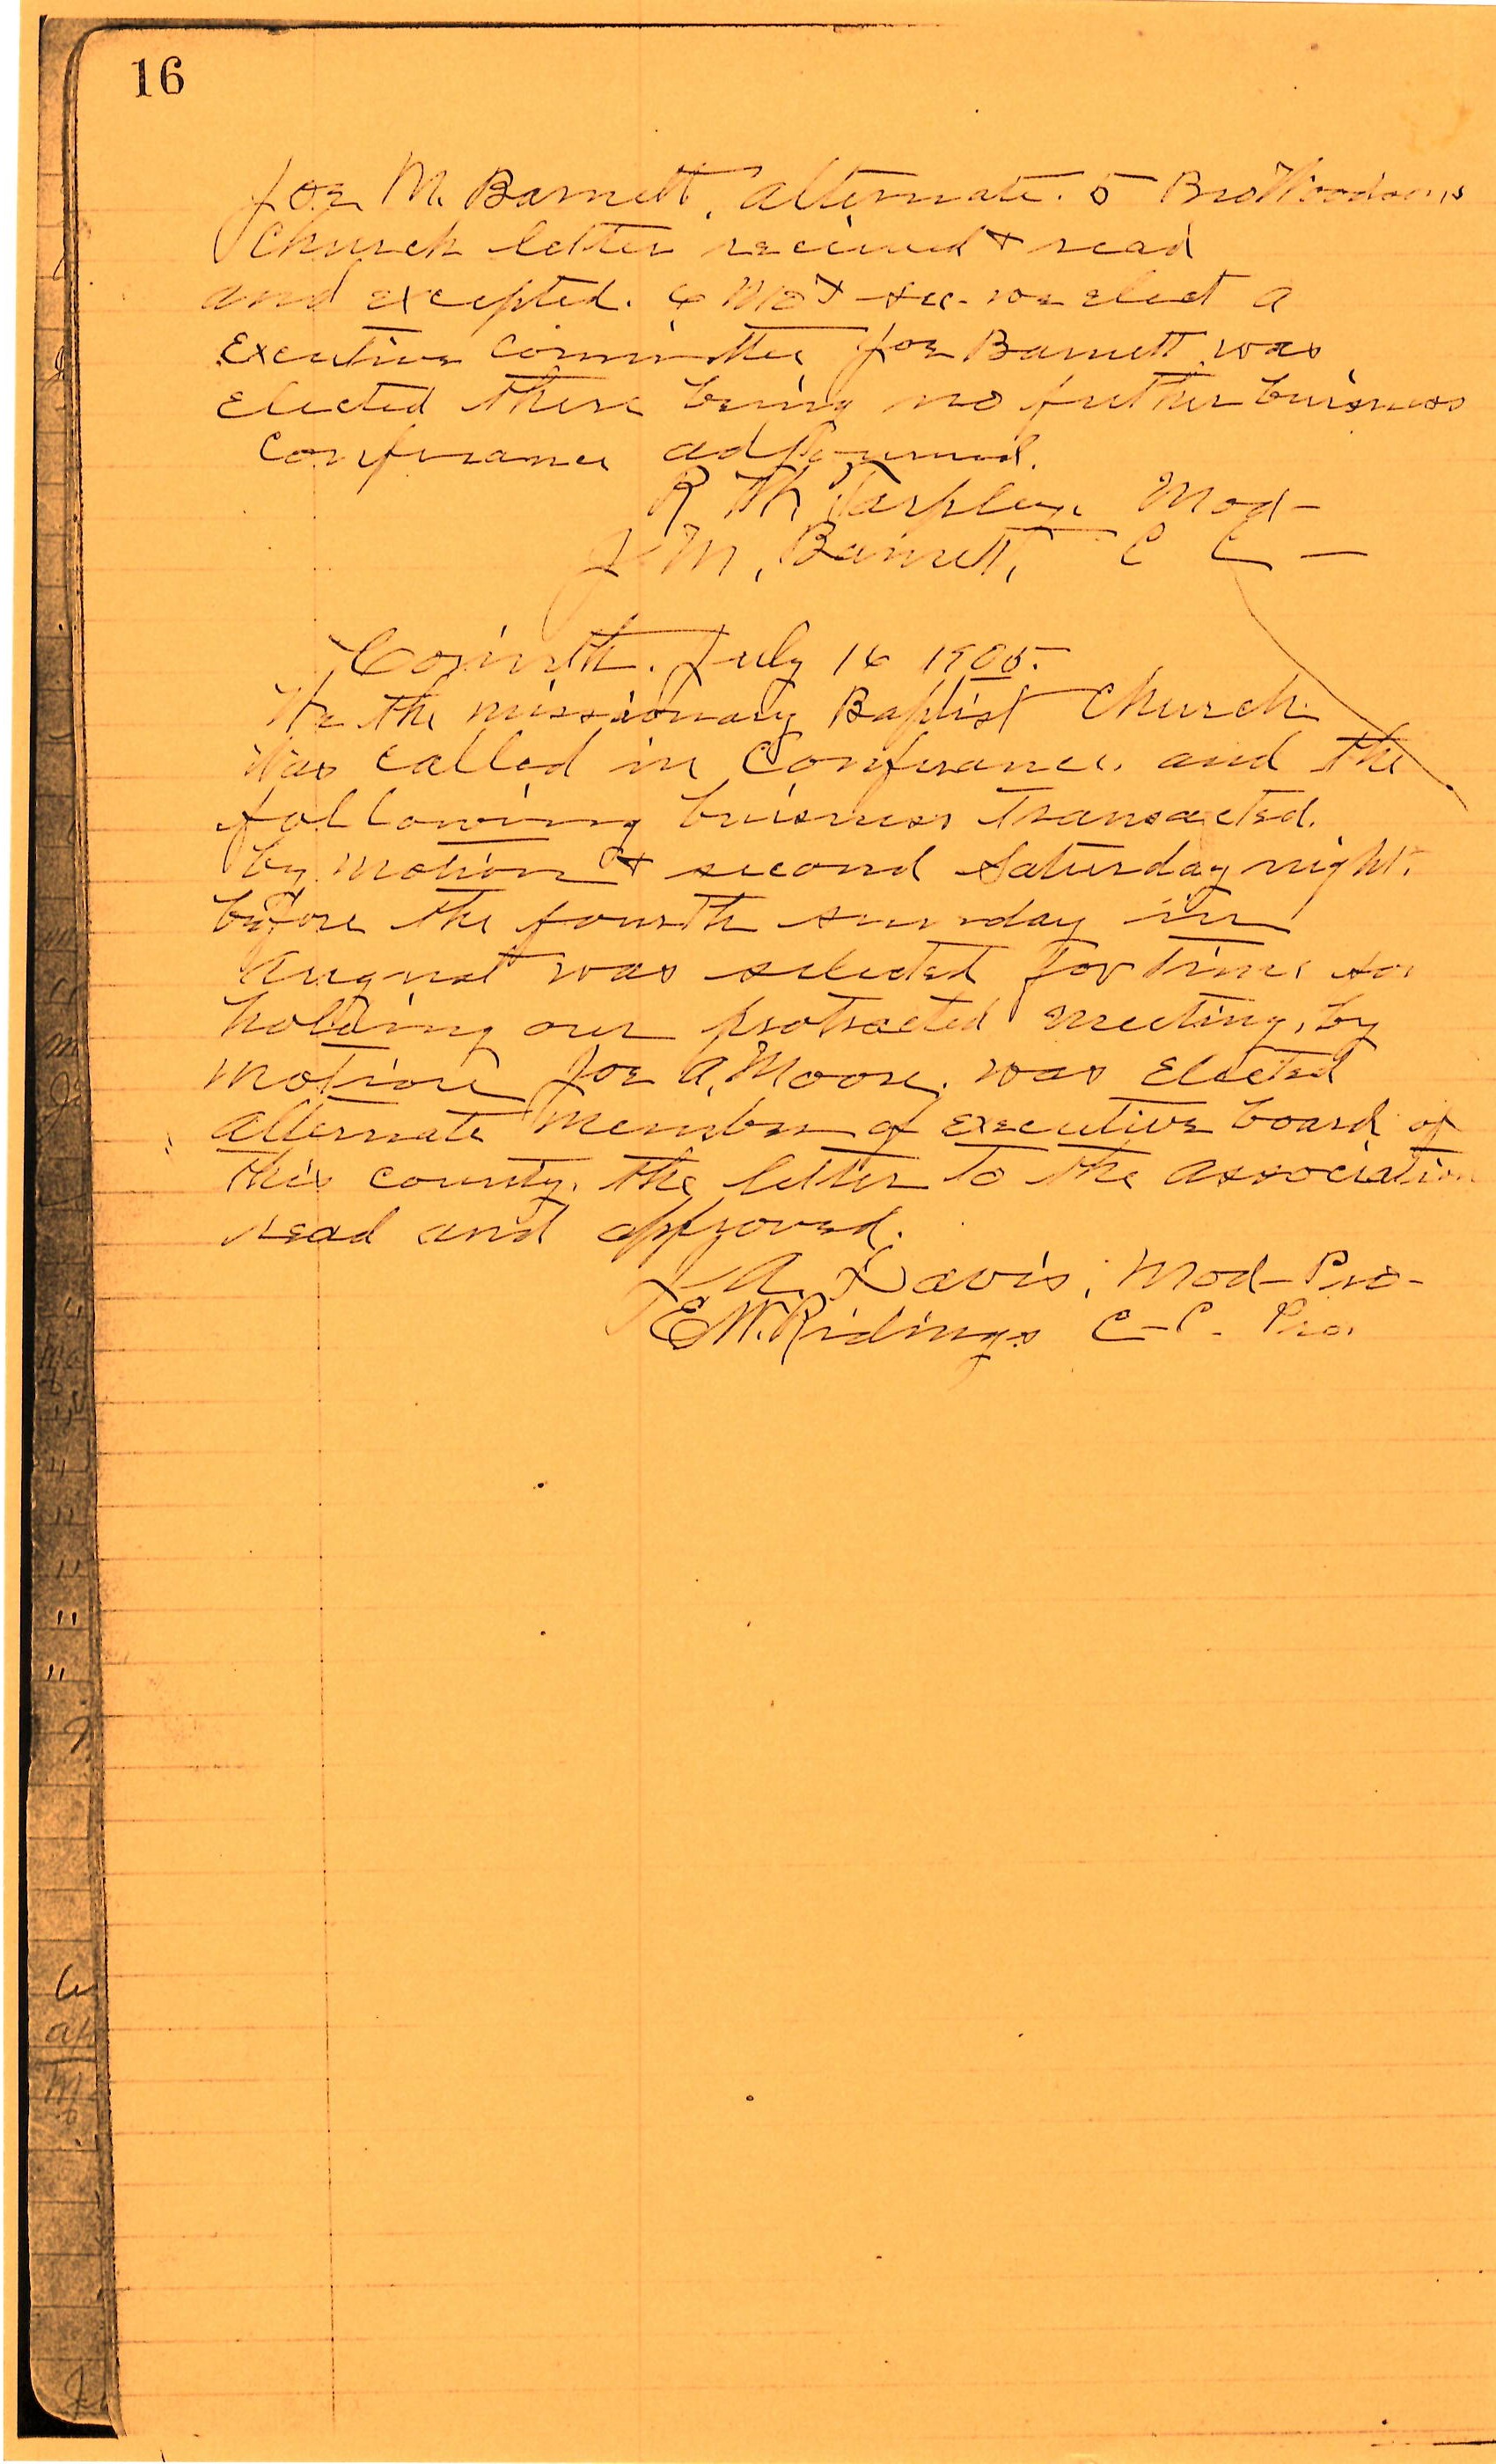 16
Joe M. Barnett, alternate. 5 Bro Woodson,s
Church letter recieved & read
and excepted. 6 Mo & sec. we elect a
Executive committee Joe Barnett was
elected there being no futher buisness
Conferance adjourned.
R M Tarpley. Mod-
J M, Barnett, C C -
Corinth. July 16 1905.
We the missionary Baptist Church
was called in Conferance. and the
following buisness transacted.
by motion & second Saturday night.
before the fourth sunday in
August was selected for time for
holding our protracted meeting, by
motion Joe A, Moore. was Elected
alternate member of executive board of
this county. the letter to the association
read and approved.
A. Davis, Mod-Pro-
E W. Ridings C-C- Pro.
"
"